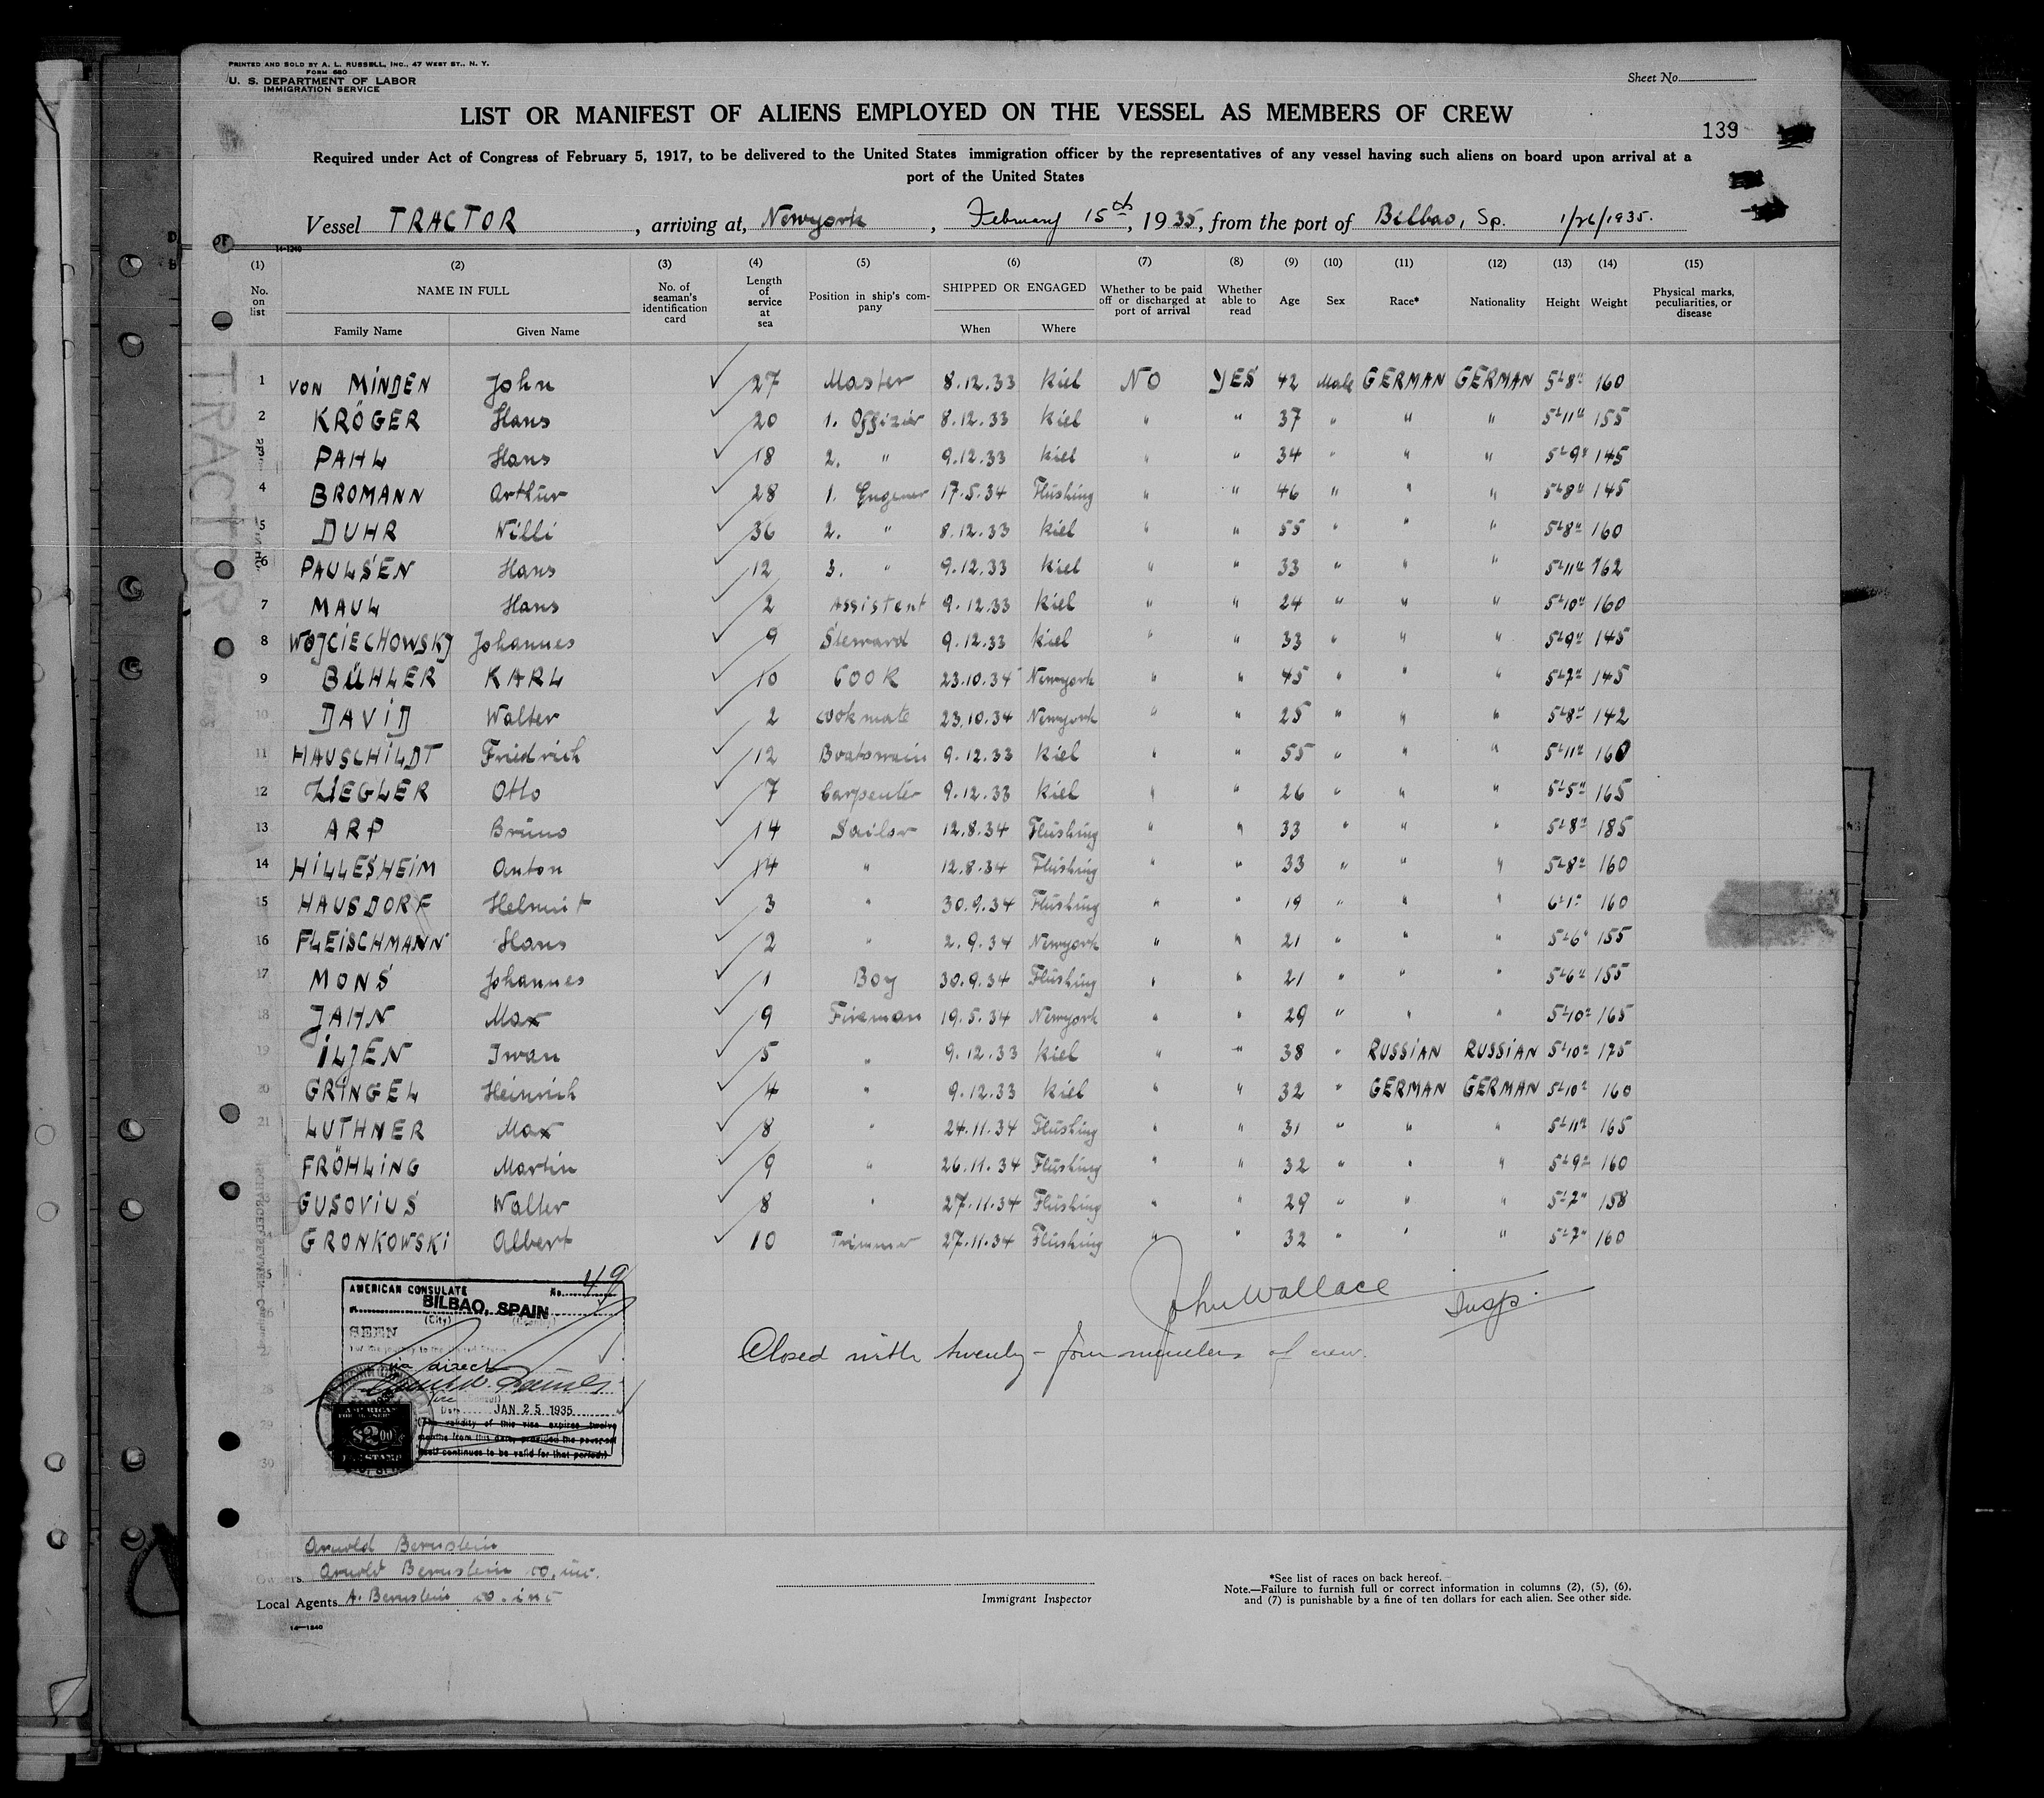 PRINTED AND SOLD BY A. L. RUSSELL, INC., 47 WEST ST., N. Y.
FORM 680
U. S. DEPARTMENT OF LABOR
IMMIGRATION SERVICE
Sheet No.
LIST OR MANIFEST OF ALIENS EMPLOYED ON THE VESSEL AS MEMBERS OF CREW
139
Required under Act of Congress of February 5, 1917, to be delivered to the United States immigration officer by the representatives of any vessel having such aliens on board upon arrival at a
port of the United States
Vessel TRACTOR, arriving at, Newyork, February 15th, 1935, from the port of Bilbao, Sp. 1/26/1935.
14-1240
(1) (2) (3) (4) (5) (6) (7) (8) (9) (10) (11) (12) (13) (14) (15)
No. on list NAME IN FULL Family Name Given Name No. of seaman's identification card Length of service at sea Position in ship's company SHIPPED OR ENGAGED When Where Whether to be paid off or discharged at port of arrival Whether able to read Age Sex Race* Nationality Height Weight Physical marks, peculiarities, or disease
TRACTOR
1 VON MINDEN John ✓ 27 Master 8.12.33 Kiel NO YES 42 Male GERMAN GERMAN 5'8" 160
2 KRÖGER Hans ✓ 20 1. Offizier 8.12.33 Kiel " " 37 " " " 5'11" 155
3 PAHL Hans ✓ 18 2. " 9.12.33 Kiel " " 34 " " " 5'9" 145
4 BROMANN Arthur ✓ 28 1. Engener 17.5.34 Flushing " " 46 " " " 5'8" 145
5 DUHR Willi ✓ 36 2. " 8.12.33 Kiel " " 55 " " " 5'8" 160
6 PAULSEN Hans ✓ 12 3. " 9.12.33 Kiel " " 33 " " " 5'11" 162
7 MAUL Hans ✓ 2 Assistent 9.12.33 Kiel " " 24 " " " 5'10" 160
8 WOJCIECHOWSKJ Johannes ✓ 9 Steward 9.12.33 Kiel " " 33 " " " 5'9" 145
9 BÜHLER KARL ✓ 10 COOK 23.10.34 Newyork " " 45 " " " 5'7" 145
10 DAVID Walter ✓ 2 cookmate 23.10.34 Newyork " " 25 " " " 5'8" 142
11 HAUSCHILDT Friedrich ✓ 12 Boatswain 9.12.33 Kiel " " 55 " " " 5'11" 160
12 ZIEGLER Otto ✓ 7 Carpenter 9.12.33 Kiel " " 26 " " " 5'5" 165
13 ARP Bruno ✓ 14 Sailor 12.8.34 Flushing " " 33 " " " 5'8" 185
14 HILLESHEIM Anton ✓ 14 " 12.8.34 Flushing " " 33 " " " 5'8" 160
15 HAUSDORF Helmut ✓ 3 " 30.9.34 Flushing " " 19 " " " 6'1" 160
16 FLEISCHMANN Hans ✓ 2 " 2.9.34 Newyork " " 21 " " " 5'6" 155
17 MONS Johannes ✓ 1 Boy 30.9.34 Flushing " " 21 " " " 5'6" 155
18 JAHN Max ✓ 9 Fireman 19.5.34 Newyork " " 29 " " " 5'10" 165
19 ILJEN Iwan ✓ 5 " 9.12.33 Kiel " " 38 " RUSSIAN RUSSIAN 5'10" 175
20 GRINGEL Heinrich ✓ 4 " 9.12.33 Kiel " " 32 " GERMAN GERMAN 5'10" 160
21 LUTHNER Max ✓ 8 " 24.11.34 Flushing " " 31 " " " 5'11" 165
FRÖHLING Martin ✓ 9 " 26.11.34 Flushing " " 32 " " " 5'9" 160
GUSOVIUS Walter ✓ 8 " 27.11.34 Flushing " " 29 " " " 5'7" 158
GRONKOWSKI Albert ✓ 10 Trimmer 27.11.34 Flushing " " 32 " " " 5'7" 160
John Wallace Insp.
Closed with twenty-four members of crew.
AMERICAN CONSULATE No. 49
BILBAO, SPAIN
(City) (Country)
SEEN
For the journey to the United States
via direct
Date JAN 25 1935
(The validity of this visa expires twelve
months from this date, provided the passport
itself continues to be valid for that period)
AMERICAN
$2.00
28
29
30
Line Arnold Bernstein
Owners Arnold Bernstein co. inc.
Local Agents A. Bernstein co. inc
Immigrant Inspector
*See list of races on back hereof.
Note.—Failure to furnish full or correct information in columns (2), (5), (6),
and (7) is punishable by a fine of ten dollars for each alien. See other side.
14—1240